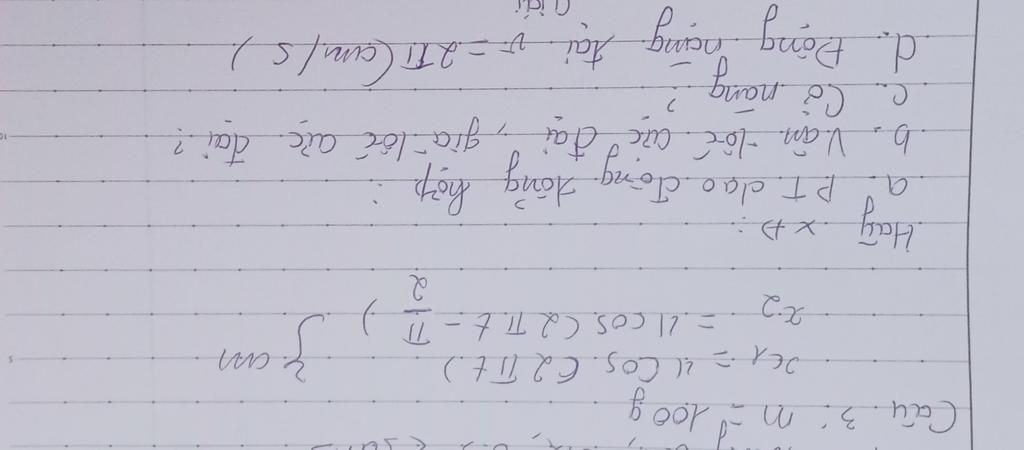 Câu 3: m = 100g
x1 = 4 Cos (2πt)
x2 = 4 cos (2πt - π/2) } cm
Hãy xđ:
a. PT dao động tổng hợp:
b. Vận tốc cực đại, gia tốc cực đại?
c. Cơ năng?
d. Động năng tại v = 2π (cm/s)
Giải